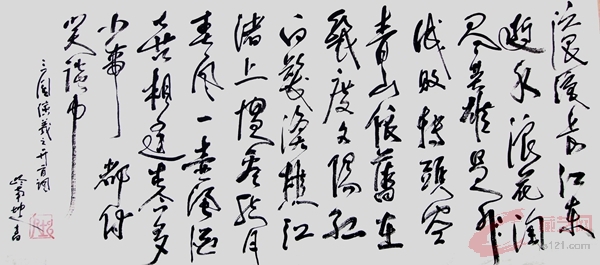 滚滚长江东
逝水浪花淘
尽英雄是非
成败转头空
青山依舊在
幾度夕阳红
白髮渔樵江
渚上惯看秋月
春风一壶浊酒
喜相逢古今多
少事都付
笑谈中
三国演义之开首词